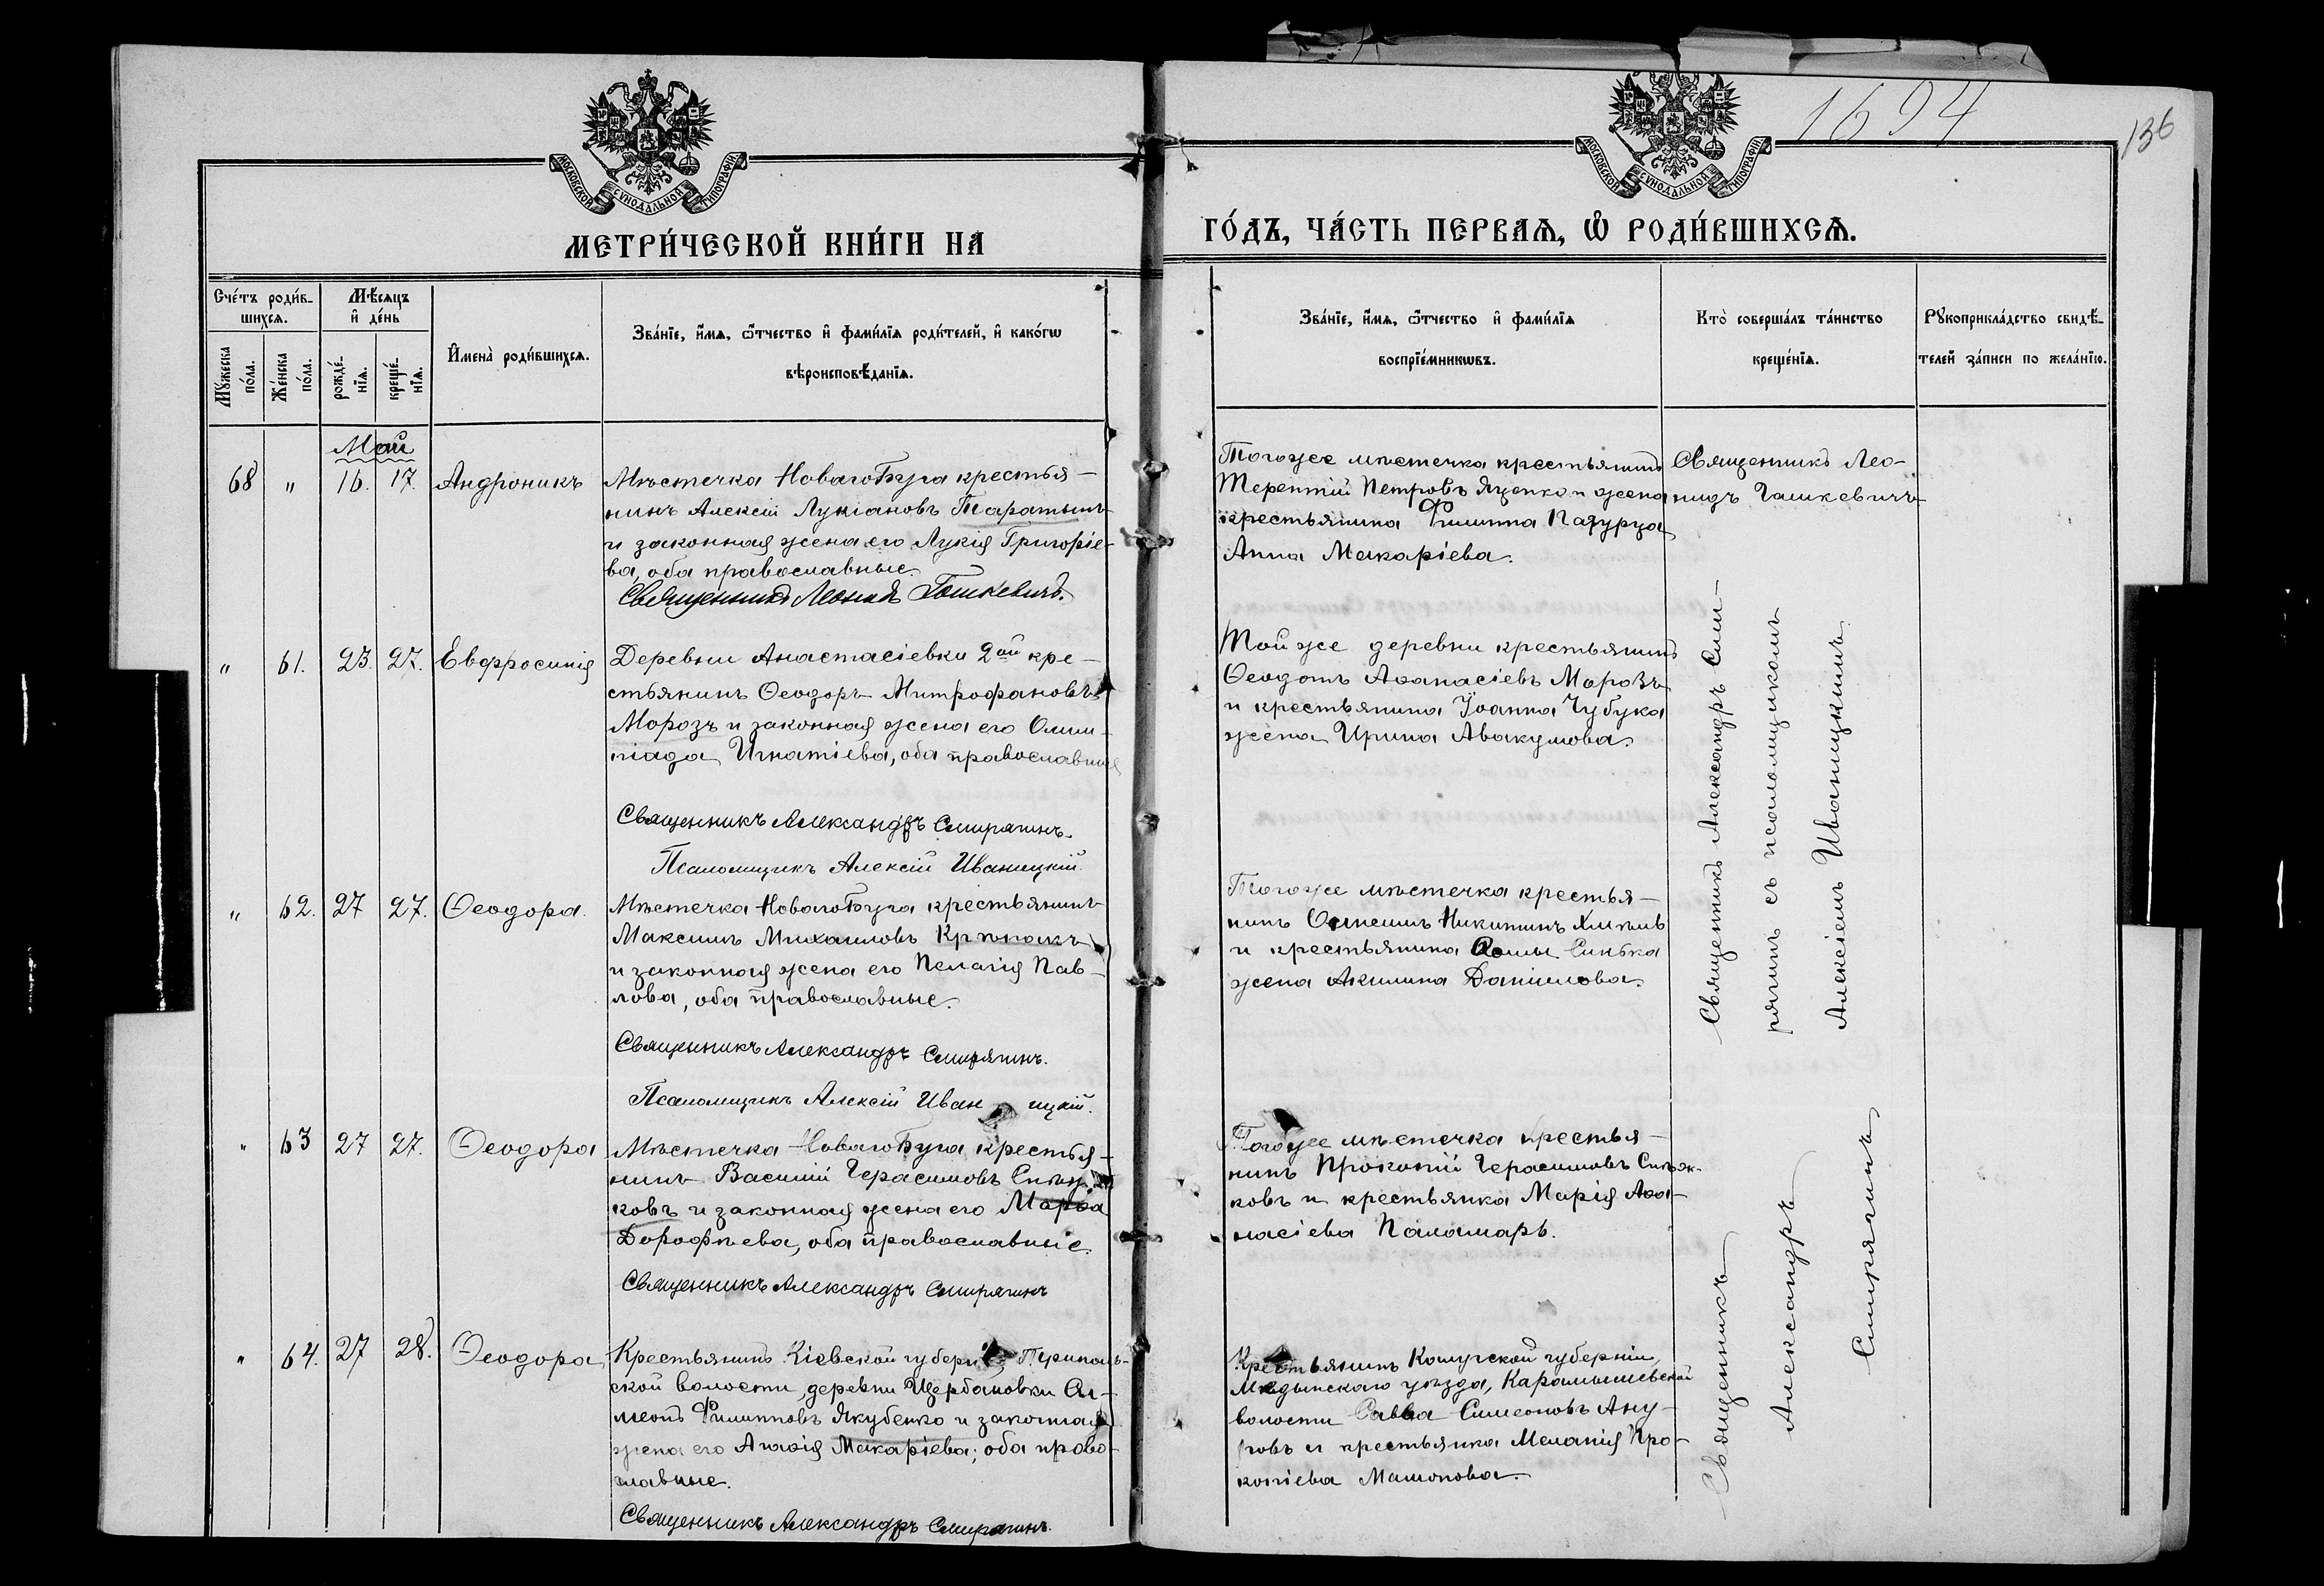 1694
136
МОСКОВСКОЙ СѴНОДАЛЬНОЙ ТИПОГРАФІИ
МОСКОВСКОЙ СѴНОДАЛЬНОЙ ТИПОГРАФІИ
МЕТРИ́ЧЕСКОЙ КНИ́ГИ НА
ГО́ДЪ, ЧА́СТЬ ПЕРВАѦ, Ѡ҆ РОДИ́ВШИХСѦ.
Сче́тъ роди́в-
шихсѧ.
Мѣ́сѧцъ
и҆ де́нь
Мꙋ́жеска
по́ла.
Же́нска
по́ла.
рожде́-
нїѧ.
креще́-
нїѧ.
И҆мена̀ роди́вшихсѧ.
Зва́нїе, и҆́мѧ, ѻ҆́тчество и҆ фами́лїѧ роди́телей, и҆ како́гѡ
вѣроисповѣ́данїѧ.
Зва́нїе, и҆́мѧ, ѻ҆́тчество и҆ фами́лїѧ
воспрїе́мникѡвъ.
Кто̀ соверша́лъ та́инство
креще́нїѧ.
Рꙋкоприкла́дство свидѣ́-
телей за́писи по жела́нїю.
Май
68 " 16. 17. Андроникъ
Мѣстечка Новаго Буга крестья-
нинъ Алексій Лукіановъ
и законная жена его Лукія Григоріе-
ва, оба православные.
Священникъ Леонидъ Гашкевичъ.
Тогоже мѣстечка крестьянинъ
Терентій Петровъ Яценко и жена
крестьянина Филиппа Пазурца
Анна Макаріева.
Священникъ Лео-
нидъ Гашкевичъ
" 61. 23. 27. Евфросинія
Деревни Анастасіевки 2ой кре-
стьянинъ Ѳеодоръ Митрофановъ
Морозъ и законная жена его Олим-
піада Игнатіева, оба православные
Священникъ Александръ Смирягинъ.
Псаломщикъ Алексій Иваницкій.
Той же деревни крестьянинъ
Ѳеодотъ Аѳанасіевъ Морозъ
и крестьянина Іоанна Чубука
жена Ирина Авакумова.
Священникъ Александръ Сми-
рягинъ съ псаломщикомъ
Алексіемъ Иваницкимъ
" 62. 27 27. Ѳеодора.
Мѣстечка Новаго Буга крестьянинъ
Максимъ Михаиловъ
и законная жена его Пелагія Пав-
лова, оба православные.
Священникъ Александръ Смирягинъ.
Псаломщикъ Алексій Иваницкій.
Тогоже мѣстечка крестья-
нинъ Никитинъ
и крестьянина Ѳомы Синька
жена Акилина Даніилова.
" 63 27 27. Ѳеодора
Мѣстечка Новаго Буга крестья-
нинъ Василій Герасимовъ
ковъ и законная жена его Марѳа
Дорофѣева, оба православные.
Священникъ Александръ Смирягинъ
Тогоже мѣстечка крестья-
нинъ Прокопій Герасимовъ
ковъ и крестьянка Марія Аѳа-
насіева Паламарь.
" 64. 27 28. Ѳеодора
Крестьянинъ Кіевской губерніи
ской волости, деревни Щербановки
Филипповъ Якубенко и законная
жена его Агаѳія Макаріева; оба право-
славные.
Священникъ Александръ Смирягинъ.
Крестьянинъ Калужской губерніи,
Медынскаго уѣзда, Карамышевской
волости Савва Симеоновъ
и крестьянка Меланія Про-
копіева
Священникъ
Александръ
Смирягинъ